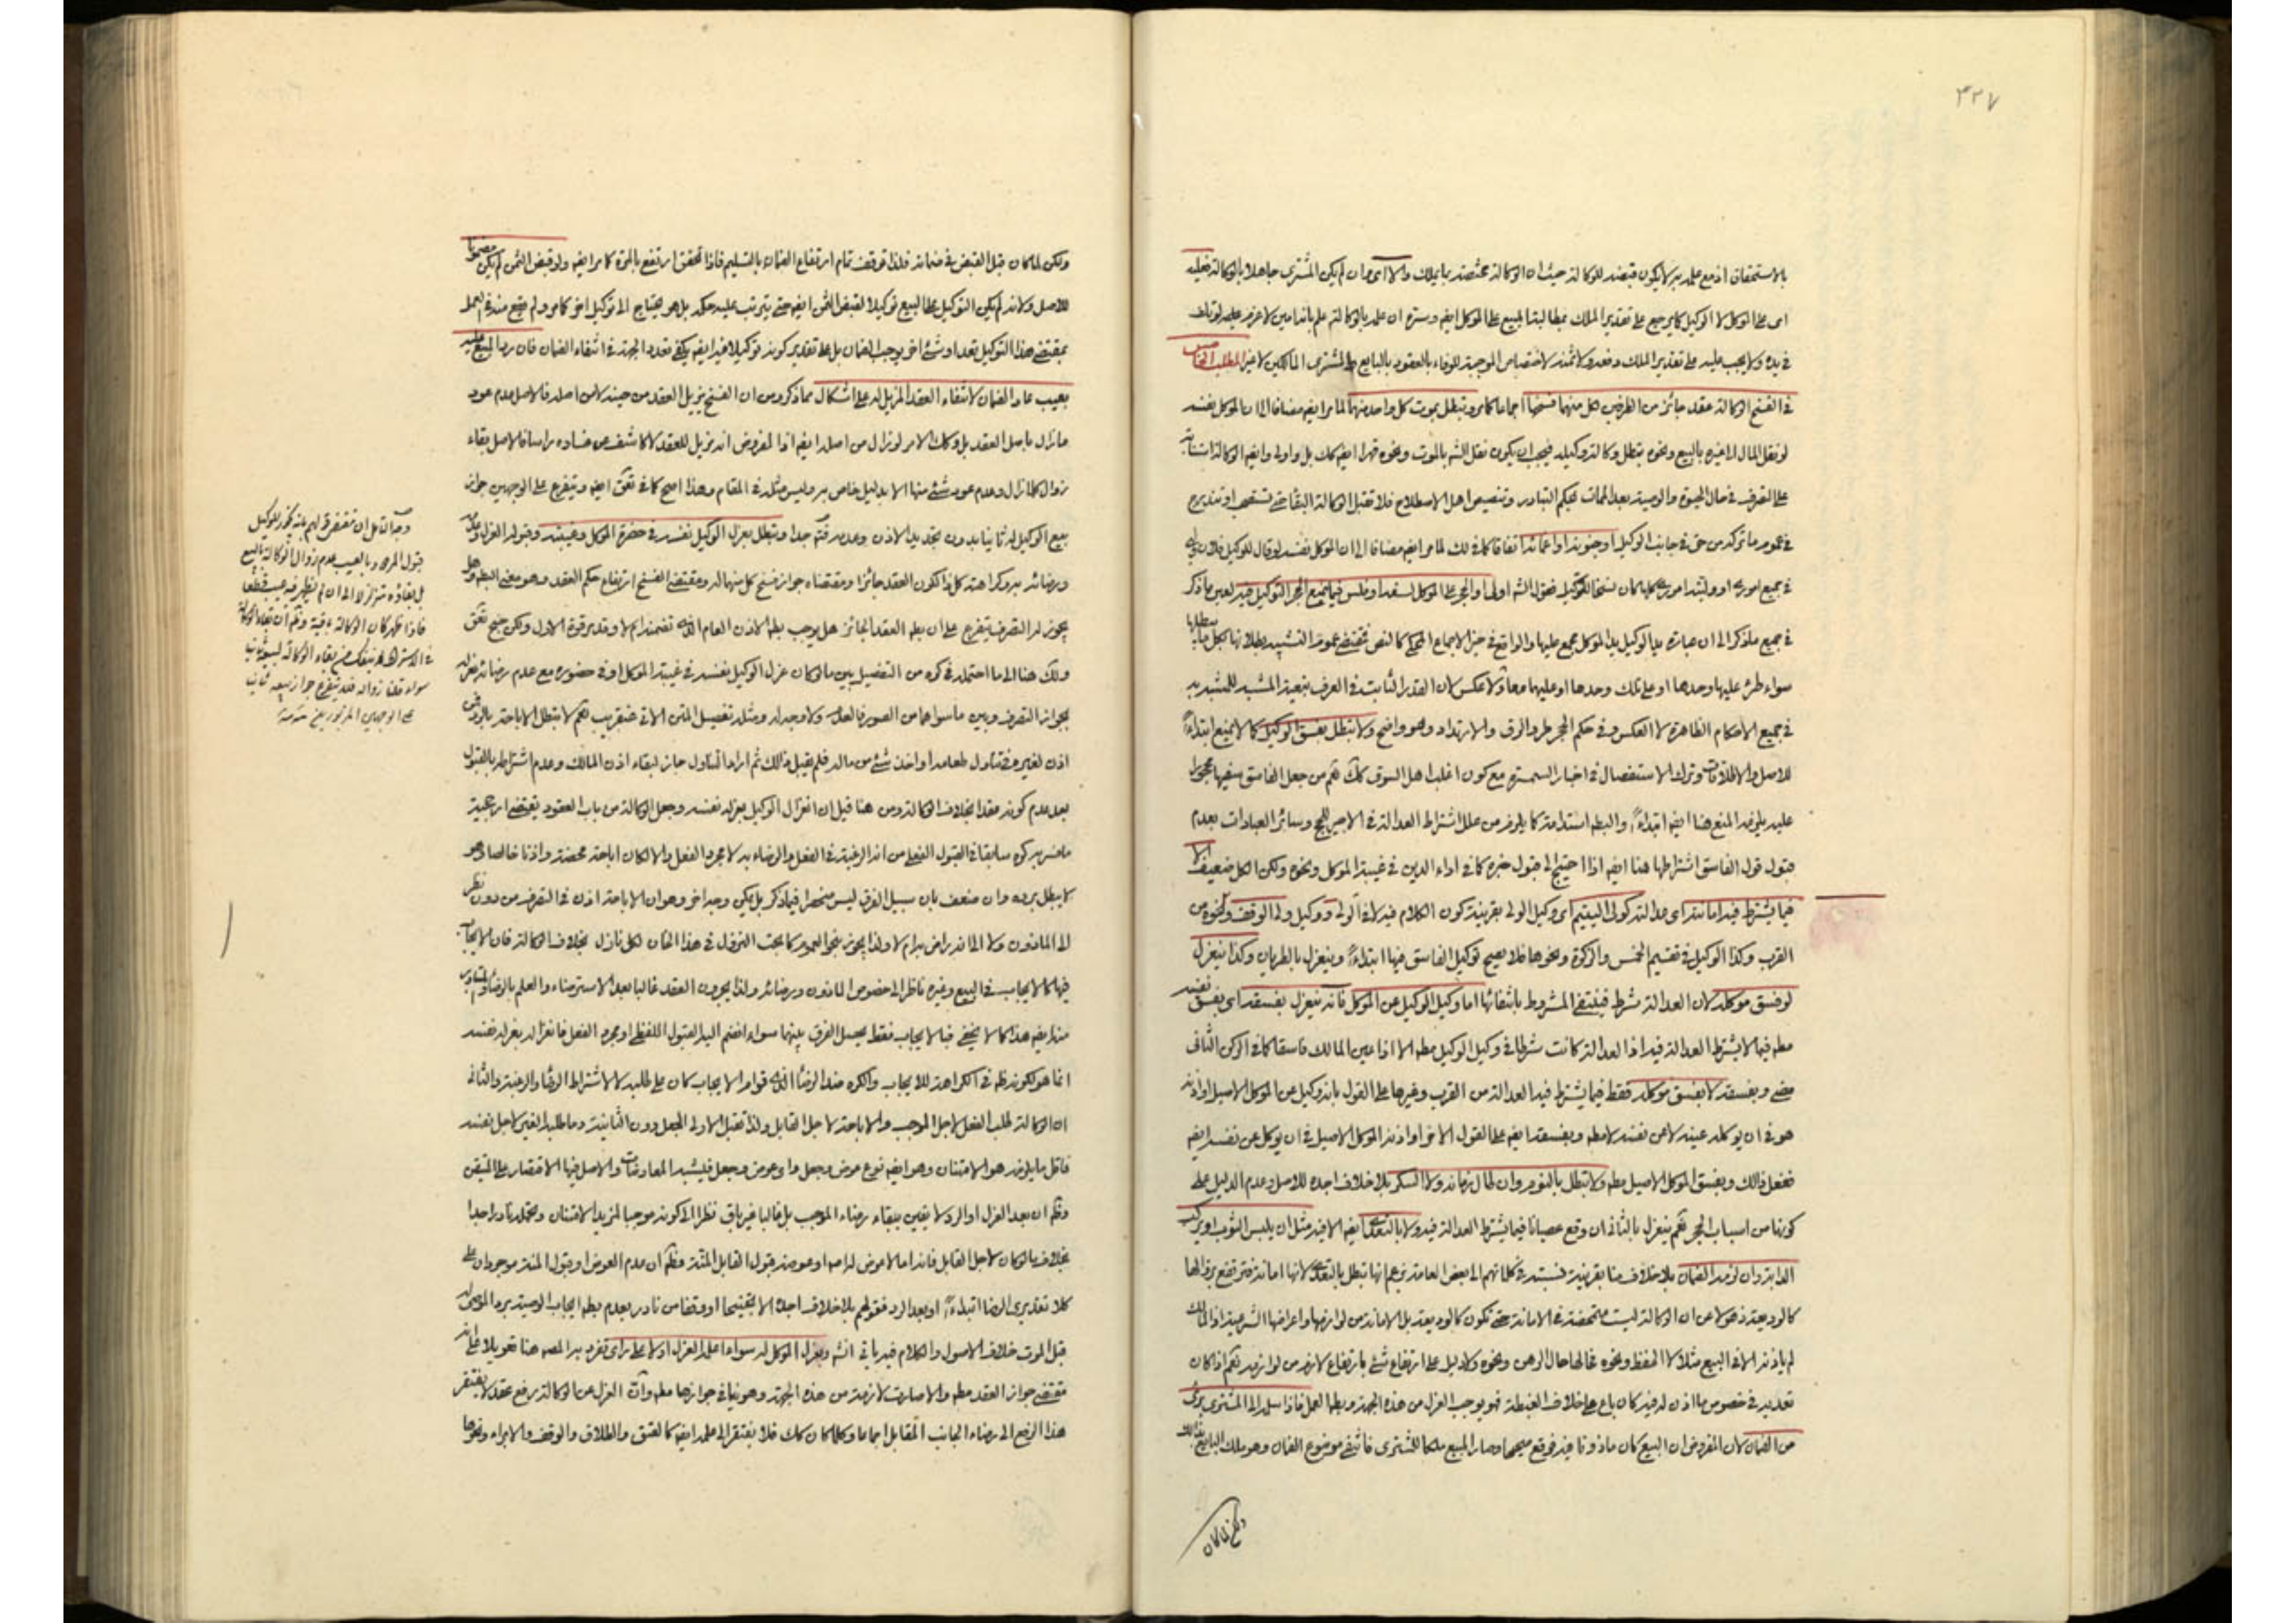 ٣٢٧
بالاستحقاق اذ مع علمه به لا يكون قبضه للوكالة حيث ان الوكالة مختصة بما يملك والا اى وان لم يكن المشترى جاهلا بالوكالة فعليه
اى على الموكل لا الوكيل كما يرجع على تقدير الملك بمطالبة المبيع على الموكل ايضا وسره ان علمه بالوكالة علم بانه امين لا غرم عليه لو تلف
فى يده ولا يجب عليه على تقدير الملك دفعه ولا ثمنه لاختصاص الموجبة للوفاء بالعقود بالبايع والمشترى المالكين لا غير المطلب الخامس
فى الفسخ الوكالة عقد جائز من الطرفين لكل منهما فسخها اجماعا كما مر وتبطل بموت كل واحد منهما لما مر ايضا مضافا الى ان الموكل بنفسه
لو نقل المال الى غيره بالبيع ونحوه يبطل وكالة وكيله فيجب ان يكون نقل الشه بالموت ونحوه قهرا ايضا كك بل واولى وايضا الوكالة استنابة
على التصرف فى حال الحيوة والوصية بعد الممات بحكم التبادر وتنصيص اهل الاصطلاح فلا تقبل الوكالة البقاء حتى تستصحب او تندرج
فى عموم ما تركه من حق فى جانب الوكيل او جنونه او اغمائه اتفاقا كما فى لك لما مر ايضا مضافا الى ان الموكل نفسه لو قال للوكيل
فى جميع امورى او وليته امورى كلها كان نسخا للتوكيل فقول الشه اولى او الحجر على الموكل لسفه او فلس فيما يمنع الحجر التوكيل فيه لعين ما ذكر
فى جميع ما ذكر الى ان عبارة يد الوكيل يد الموكل مجمع عليها والواقع فى حيز الاجماع المحكى كالنص فيقتضى عموم التشبيه بطلانها بكل ما يبطلها
سواء طرء عليها وحدها او على تلك وحدها او عليهما معا ولا عكس لان القدر الثابت فى العرف تبعية المشبه للمشبه به
فى جميع الاحكام الظاهرة لا العكس وفى حكم الحجر طرو الرق والارتداد وهو واضح ولا تبطل بفسق الوكيل كما لا يمنع ابتداء
للاصل والاطلاقات وترك الاستفصال فى اخبار السمسرة مع كون اغلب اهل السوق كك نعم من جعل الفاسق سفيها محجورا
عليه يلزمه المنع هنا ايضا ابتداء والبطه استدامة كما يلزمه من علل اشتراط العدالة فى الاجير للحج وسائر العبادات بعدم
قبول قول الفاسق اشتراطها هنا ايضا اذا احتيج الى قبول خبره كما فى اداء الدين فى غيبة الموكل ونحوه ولكن الكل ضعيف الا
فيما يشترط فيه امانته اى عدالته كولى اليتيم اى وكيل الولى بقرينة كون الكلام فيه لا فى الولى ووكيل ولى الوقف ونحوه من
القرب وكذا الوكيل فى تقسيم الخمس والزكوة ونحوها فلا يصح توكيل الفاسق فيها ابتداء وينعزل بالطريان وكذا ينعزل
لو فسق موكله لان العدالة شرط فينتفى المشروط بانتفائها اما وكيل الوكيل عن الموكل فانه ينعزل بفسقه اى بفسق نفسه
مطه فيما لا يشترط العدالة فيه اذ العدالة كانت شرطا فى وكيل الوكيل مطه الا اذا عين المالك فاسقا كما فى الركن الثانى
مضى وبفسقه لا بفسق موكله فقط فيما يشترط فيه العدالة من القرب وغيرها على القول بانه وكيل عن الموكل الاصيل او اذنه
هو فى ان يوكله عينه لا عن نفسه لا مطه وبفسقه ايضا على القول الاخر او اذنه الموكل الاصيل فى ان يوكل عن نفسه ايضا
ففعل ذلك وبفسق الموكل الاصيل مطه ولا تبطل بالنوم وان طال زمانه ولا السكر بلا خلاف اجده للاصل وعدم الدليل على
كونها من اسباب الحجر نعم ينعزل بالثانى ان وقع عصيانا فيما يشترط العدالة فيه ولا بالتعدى ايضا الا فيه مثل ان يلبس الثوب او يركب
الدابة وان لزمه الضمان بلا خلاف منا بقرينة نسبته فى كلامهم الى بعض العامة زعم انها تبطل بالتعدى لانها امانة فترتفع بزوالها
كالوديعة ذهولا عن ان الوكالة ليست متمحضة فى الامانة حتى تكون كالوديعة بل الامانة من لوازمها واعراضها الشرعية اذ المالك
لم ياذنه الا فى البيع مثلا لا الحفظ ونحوه فحالها حال الرهن ونحوه ولا دليل على ارتفاع شئ بارتفاع لازم من لوازمه نعم اذا كان
تعديه فى خصوص ما اذن له فيه كان باع على خلاف الغبطة فهو يوجب العزل من هذه الجهة وبطه العمل فاذا سلمه الى المشترى برئ
من الضمان لان المفروض ان البيع كان ماذونا فيه فوقع صحيحا وصار المبيع ملكا للمشترى فانتفى موضوع الضمان وهو ملك البايع
ولكن لما كان
ولكن لما كان قبل القبض فى ضمانه فلذا توقف تمام ارتفاع الضمان بالتسليم فاذا تحقق ارتفع بالمرة كما مر ايضا ولو قبض الثمن لم يكن مضمونا
للاصل ولانه لم يكن التوكيل على البيع توكيلا لقبض الثمن ايضا حتى يترتب عليه حكمه بل هو يحتاج الى توكيل اخر كما مر ولم يقع منه فى العمل
بمقتضى هذا التوكيل تعد او شئ اخر يوجب الضمان بل على تقدير كونه توكيلا فيه ايضا يكفى تعدد الجهة فى انتفاء الضمان فان رد المبيع عليه
بعيب عاد الضمان لانتفاء العقد المزيل له على اشكال مما ذكر ومن ان الفسخ يزيل العقد من حينه لا من اصله فالاصل عدم عود
ما زال باصل العقد بل وكك الامر لو زال من اصله ايضا اذ المفروض انه مزيل للعقد لا كاشف عن فساده من راسا فالاصل بقاء
زوال كلما زال وعدم عود شئ منها الا بدليل خاص به وليس مثله فى المقام وهذا اصح كما فى تعق ايضا ويتفرع على الوجهين جواز
بيع الوكيل له ثانيا بدون تجديد الاذن وعدمه فته جدا وتبطل بعزل الوكيل نفسه فى حضرة الموكل وغيبته وقبوله العزل
ورضائه به وكراهته كل ذا لكون العقد جائزا ومقتضاه جواز فسخ كل منهما له ومقتضى الفسخ ارتفاع حكم العقد وهو معنى البطه وهل
يجوز له التصرف يتفرع على ان بطه العقد الجائز هل يوجب بطه الاذن العام الذى تضمنه ام لا وقد مر قوة الاول ولكن جنح تعق
ولك هنا الى ما احتمله فى كره من التفصيل بين ما لو كان عزل الوكيل نفسه فى غيبة الموكل او فى حضوره مع عدم رضائه بعزله
لجواز التصرف وبين ما سواهما من الصور فالعدم ولا وجه له ومثله تفصيل المتن الاتى عنقريب نعم لا تبطل الاباحة بالرد فمن
اذن لغيره فى تناول طعامه او اخذ شئ من ماله فلم يقبل ذلك ثم اراد التناول جاز لبقاء اذن المالك وعدم اشتراطه بالقبول
بعد عدم كونه عقدا بخلاف الوكالة ومن هنا قيل ان انعزال الوكيل بعزله نفسه وجعل الوكالة من باب العقود يقتضى ارجحية
ما فسر به كره سابقا فى القبول الفعلى من انه الرغبة فى الفعل والرضاء به لا مجرد الفعل والا لكان اباحة محضة واذنا خالصا وهو
لا يبطل برده وان ضعف بان سبيل الفرق ليس منحصرا فيما ذكر بل يكفى وجه اخر وهو ان الاباحة اذن فى التصرف من دون نظر
الى الماذون ولا الى انه راض به ام لا ولذا يجوز بنحو العموم كابحت النزول فى هذا الخان لكل نازل بخلاف الوكالة فان الايجاب
فيها كالايجاب فى البيع وغيره ناظر الى خصوص الماذون ورضائه ولذا يجرون العقد غالبا بعد الاسترضاء والعلم بالرضاء
منه ايضا هذا كما لا يخفى فبالايجاب فقط يحصل الفرق بينهما سواء انضم اليه القبول اللفظى او مجرد الفعل فانعزاله بعزله نفسه
انما هو لكونه ظه فى الكراهة للايجاب والكره ضد الرضا الذى قوام الايجاب كان على طلبه لا لاشتراط الرضا والرغبة والثانى
ان الوكالة طلب الفعل لاجل الموجب والاباحة لاجل القابل ولذا تقبل الاولى الجعل دون الثانية وما طلبه الغير لاجل نفسه
فاقل ما يلزمه هو الامتنان وهو ايضا نوع عوض وجعل او عوض وجعل فيشبه المعاوضات والاصل فيها الاقتصار على المتيقن
وظه ان بعد العزل او الرد لا يقين ببقاء رضاء الموجب بل غالبا غير باق نظرا الى كونه موجبا لمزيد الامتنان وتحمله نادر جدا
بخلاف ما لو كان لاجل القابل فانه اما لا عوض له اصلا او عوضه قبول القابل المنة وظه ان عدم العوض او قبول المنة موجودان على
كلا تقديرى الرضا ابتداء او بعد الرد فقولهم بلا خلاف اجده الا تخنيحا او وقفا من نادر بعدم بطه ايجاب الوصية برد الموصى له
قبل الموت خلاف الاصول والكلام فيه ياتى انشه وبعزل الموكل له سواء اعلمه العزل او لا على راى تفرد به المصه هنا تعويلا على انه
مقتضى جواز العقد مطه والا صارت لازمة من هذه الجهة وهو ينافى جوازها مطه وان العزل عن الوكالة رفع عقد لا يفتقر
هذا الرفع الى رضاء الجانب المقابل اجماعا وكلما كان كك فلا يفتقر الى علمه ايضا كالعتق والطلاق والوقف والابراء ونحوها
وجه التامل ان مقتضى قولهم بانه يجوز للوكيل
قبول المردود بالعيب عدم زوال الوكالة بالبيع
بل بقاؤه متزلزلا الى ان لم يظهر فيه عيب قطعا
فاذا ظهر كان الوكالة باقية
سواء قلنا زواله فلا يتفرع جواز بيعه ثانيا
على الوجهين المزبورين منه